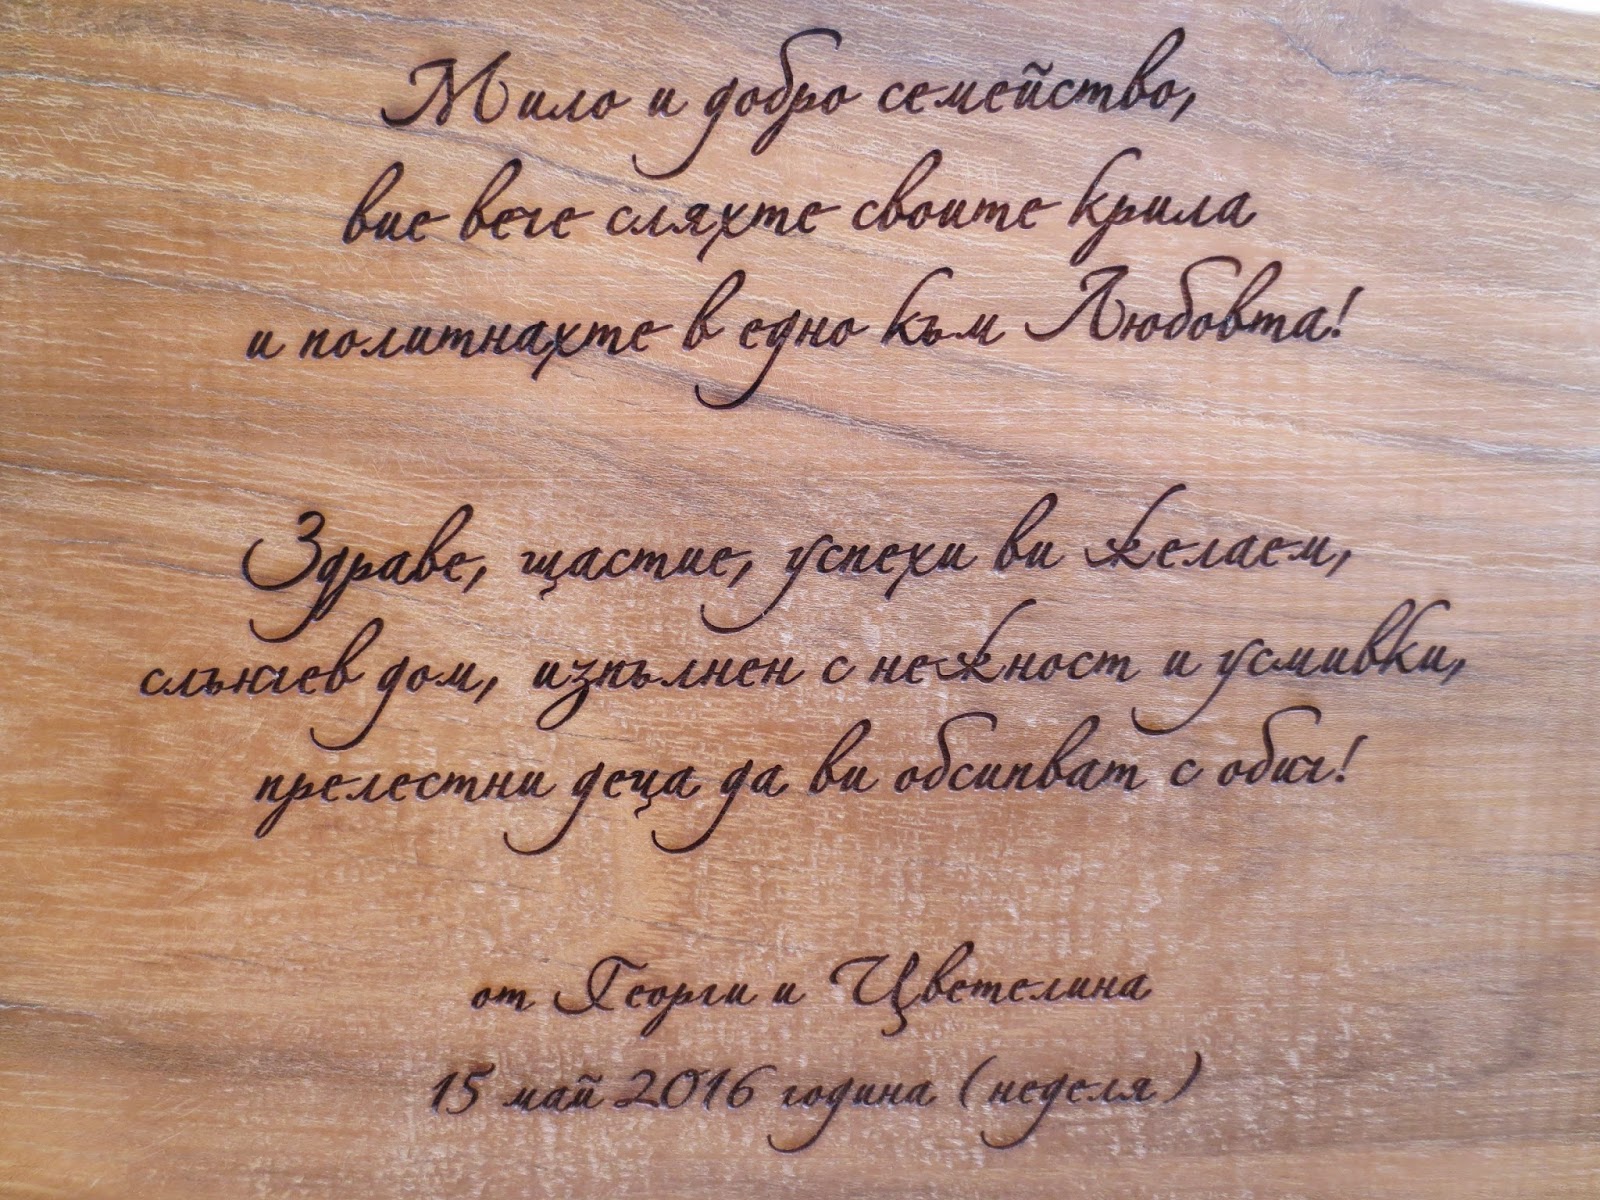 Мило и добро семейство,
вие вече сляхте своите крила
и политнахте в едно към Любовта!
Здраве, щастие, успехи ви желаем,
слънчев дом, изпълнен с нежност и усмивки,
прелестни деца да ви обсипват с обич!
от Георги и Цветелина
15 май 2016 година (неделя)